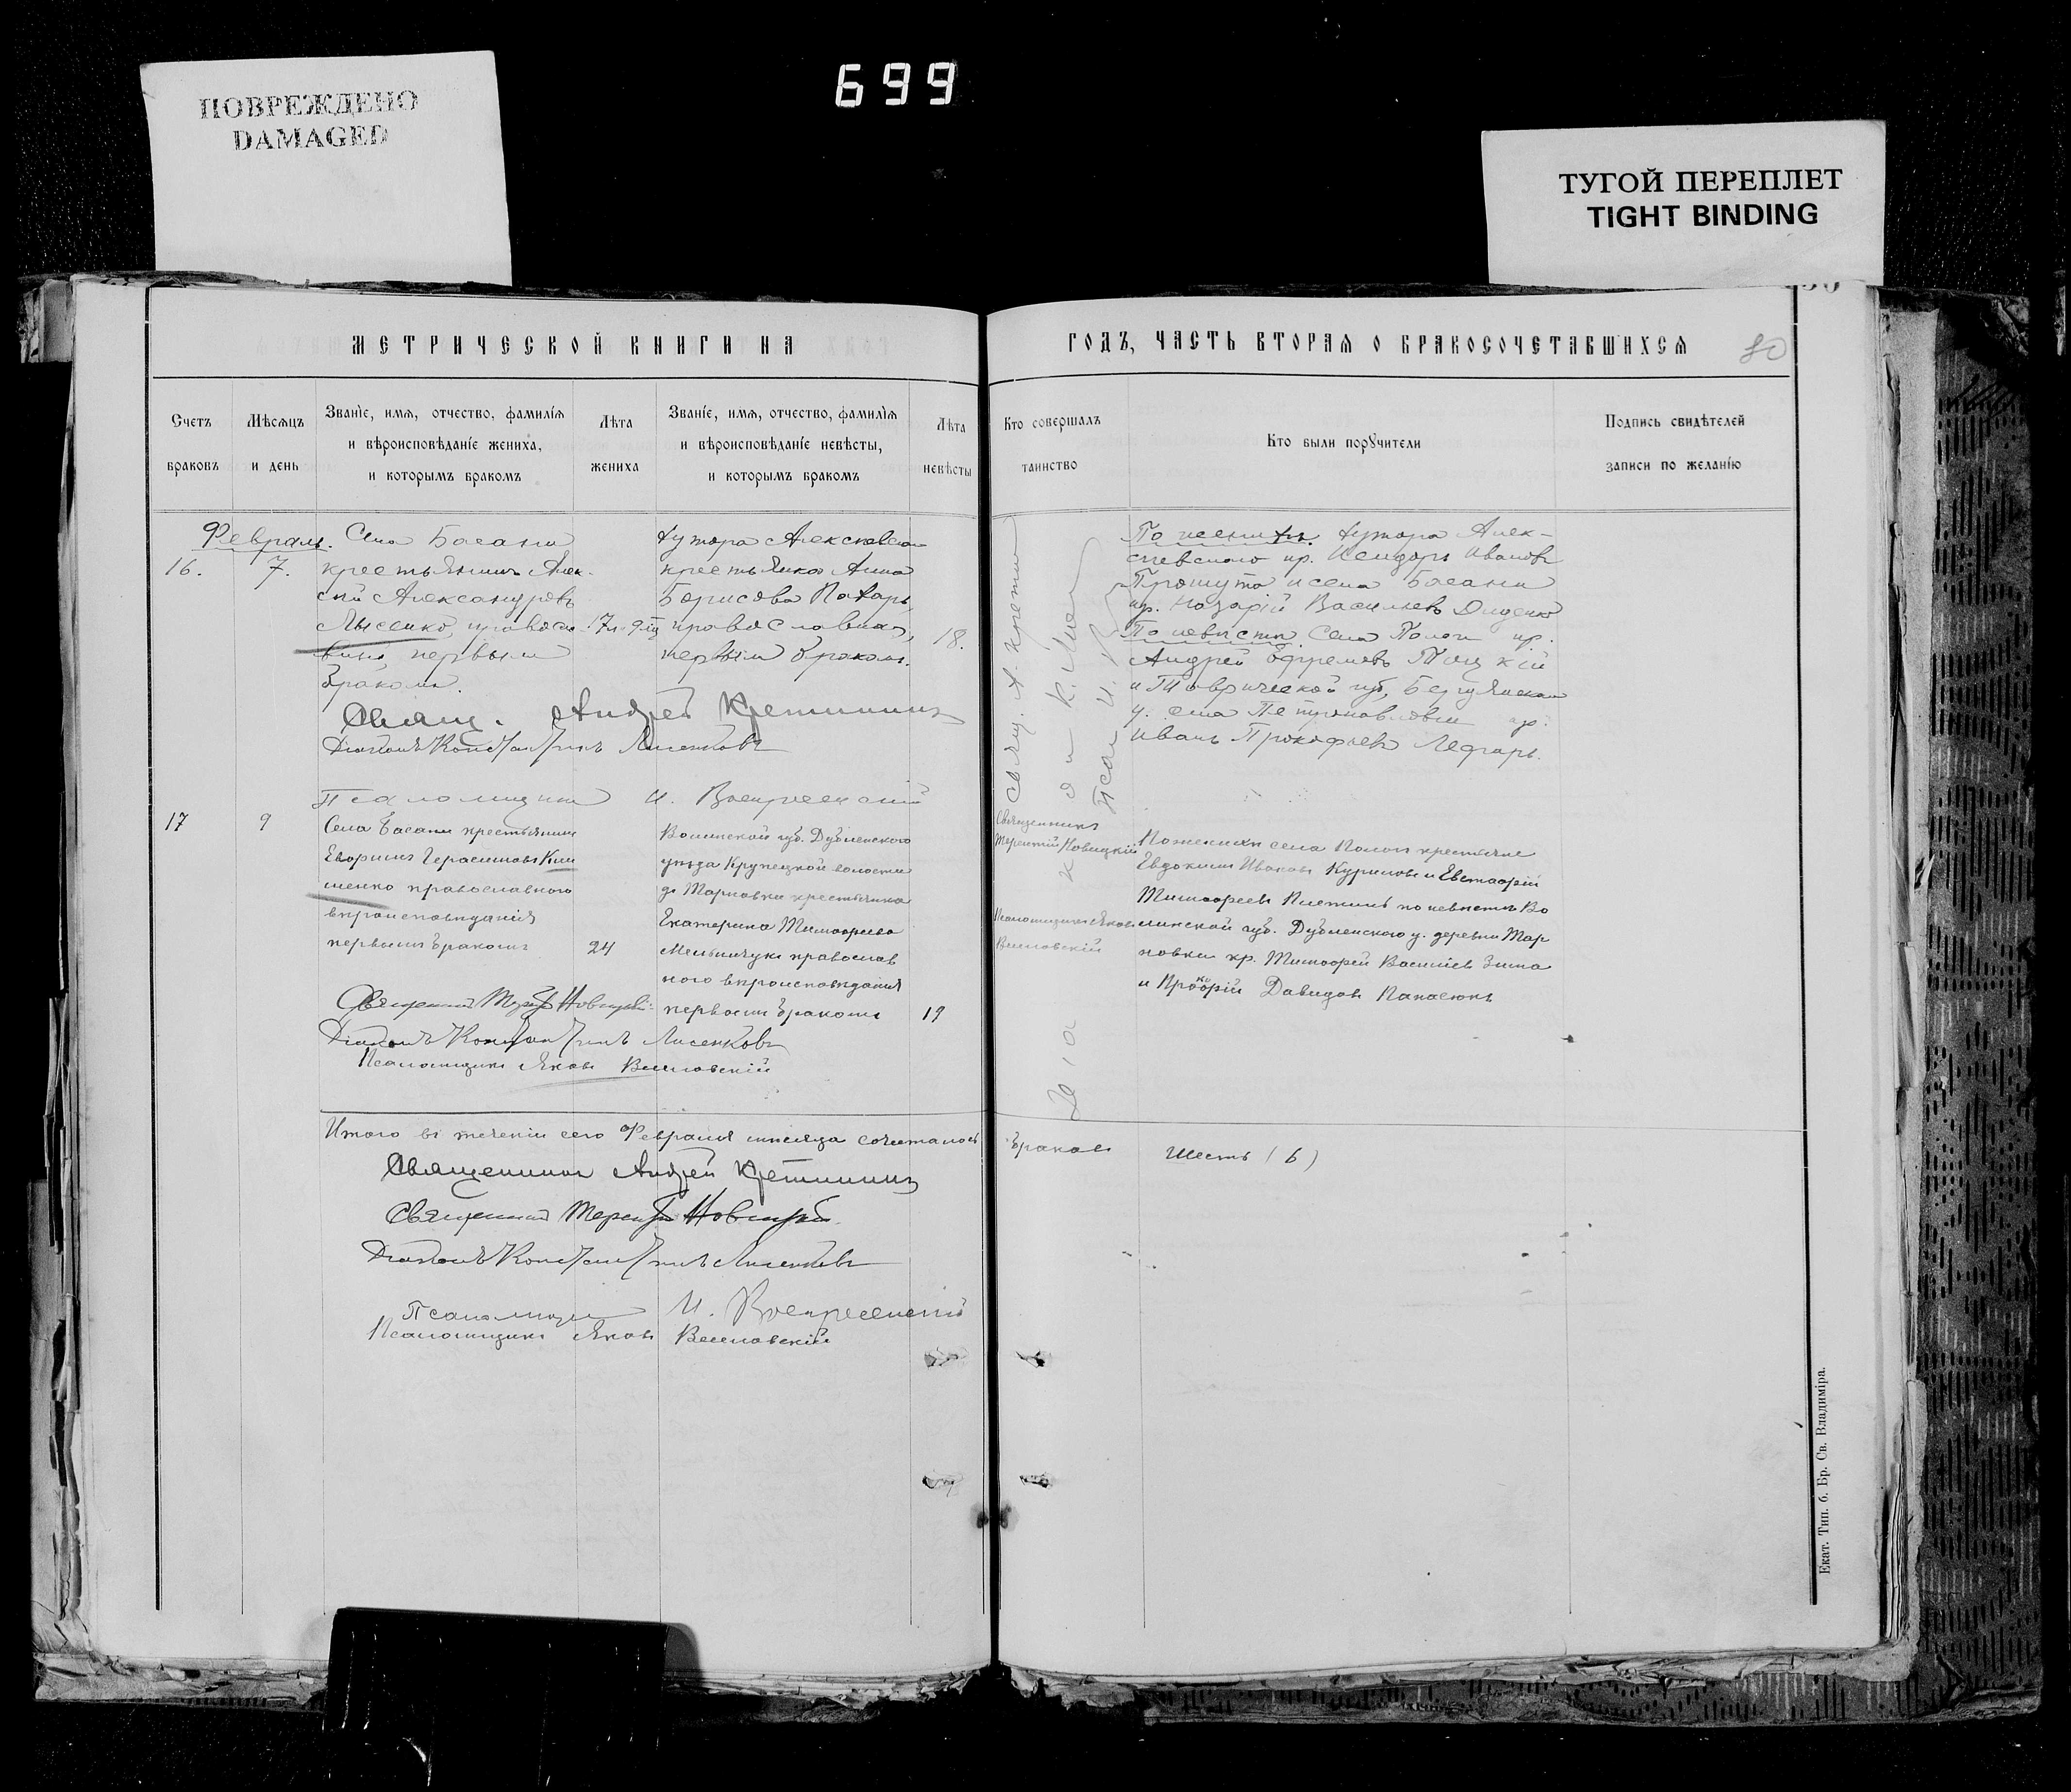 699
ПОВРЕЖДЕНО
DAMAGED
ТУГОЙ ПЕРЕПЛЕТ
TIGHT BINDING
МЕТРИЧЕСКОЙ КНИГИ НА
Счетъ
браковъ
Мѣсяцъ
и день
Званіе, имя, отчество, фамилія
и вѣроисповѣданіе жениха,
и которымъ бракомъ
Лѣта
жениха
Званіе, имя, отчество, фамилія
и вѣроисповѣданіе невѣсты,
и которымъ бракомъ
Лѣта
невѣсты
Февраль.
16.
7.
Села Басани
крестьянинъ Алек-
сѣй Александровъ
Лысенко, правосла-
вный, первымъ
бракомъ.
17 л. 9 м.
хутора Алексѣевскаго
крестьянка Анна
Борисова
православная,
первымъ бракомъ.
18.
Свящ. Андрей
Діаконъ Константинъ Лисенковъ
Псаломщикъ И. Воскресенскій
17
9
Села Басани крестьянинъ
Герасимовъ Кли
менко православнаго
вѣроисповѣданія
первымъ бракомъ
24
Волынской губ. Дубенского
уѣзда Крупецкой волости
д. крестьянка
Екатерина Тимофеева
Мельничукъ православ
наго вѣроисповѣданія
первымъ бракомъ
19
Священникъ Терентій Новицкій
Діаконъ Константинъ Лисенковъ
Псаломщикъ Яковъ
Итого въ теченіи сего Февраля мѣсяца сочеталось
Священникъ Андрей
Священникъ Терентій Новицкій
Діаконъ Константинъ Лисенковъ
Псаломщикъ И. Воскресенскій
Псаломщикъ Яковъ
ГОДЪ, ЧАСТЬ ВТОРАЯ О БРАКОСОЧЕТАВШИХСЯ
80
Кто совершалъ
таинство
Кто были поручители
Подпись свидѣтелей
записи по желанію
По женихѣ хутора Алек-
сѣевскаго кр. Ивановъ
и села Басани
кр. Назарій Васильевъ
По невѣстѣ села Пологи кр.
Андрей Ефремовъ
и Таврической губ, Бердянскаго
у. села кр.
Иванъ Прокофьевъ
Священникъ
Терентій Новицкій
Псаломщикъ Яковъ
По женихѣ села Пологи крестьяне
Евдокимъ Ивановъ Куриловъ и Евстафій
Тимофеевъ по невѣстѣ Во
лынской губ. Дубенского у. деревни
кр. Тимофей Васильевъ Зима
и Давидовъ Панасюкъ
браковъ Шесть (6)
Екат. Тип. б. Бр. Св. Владиміра.